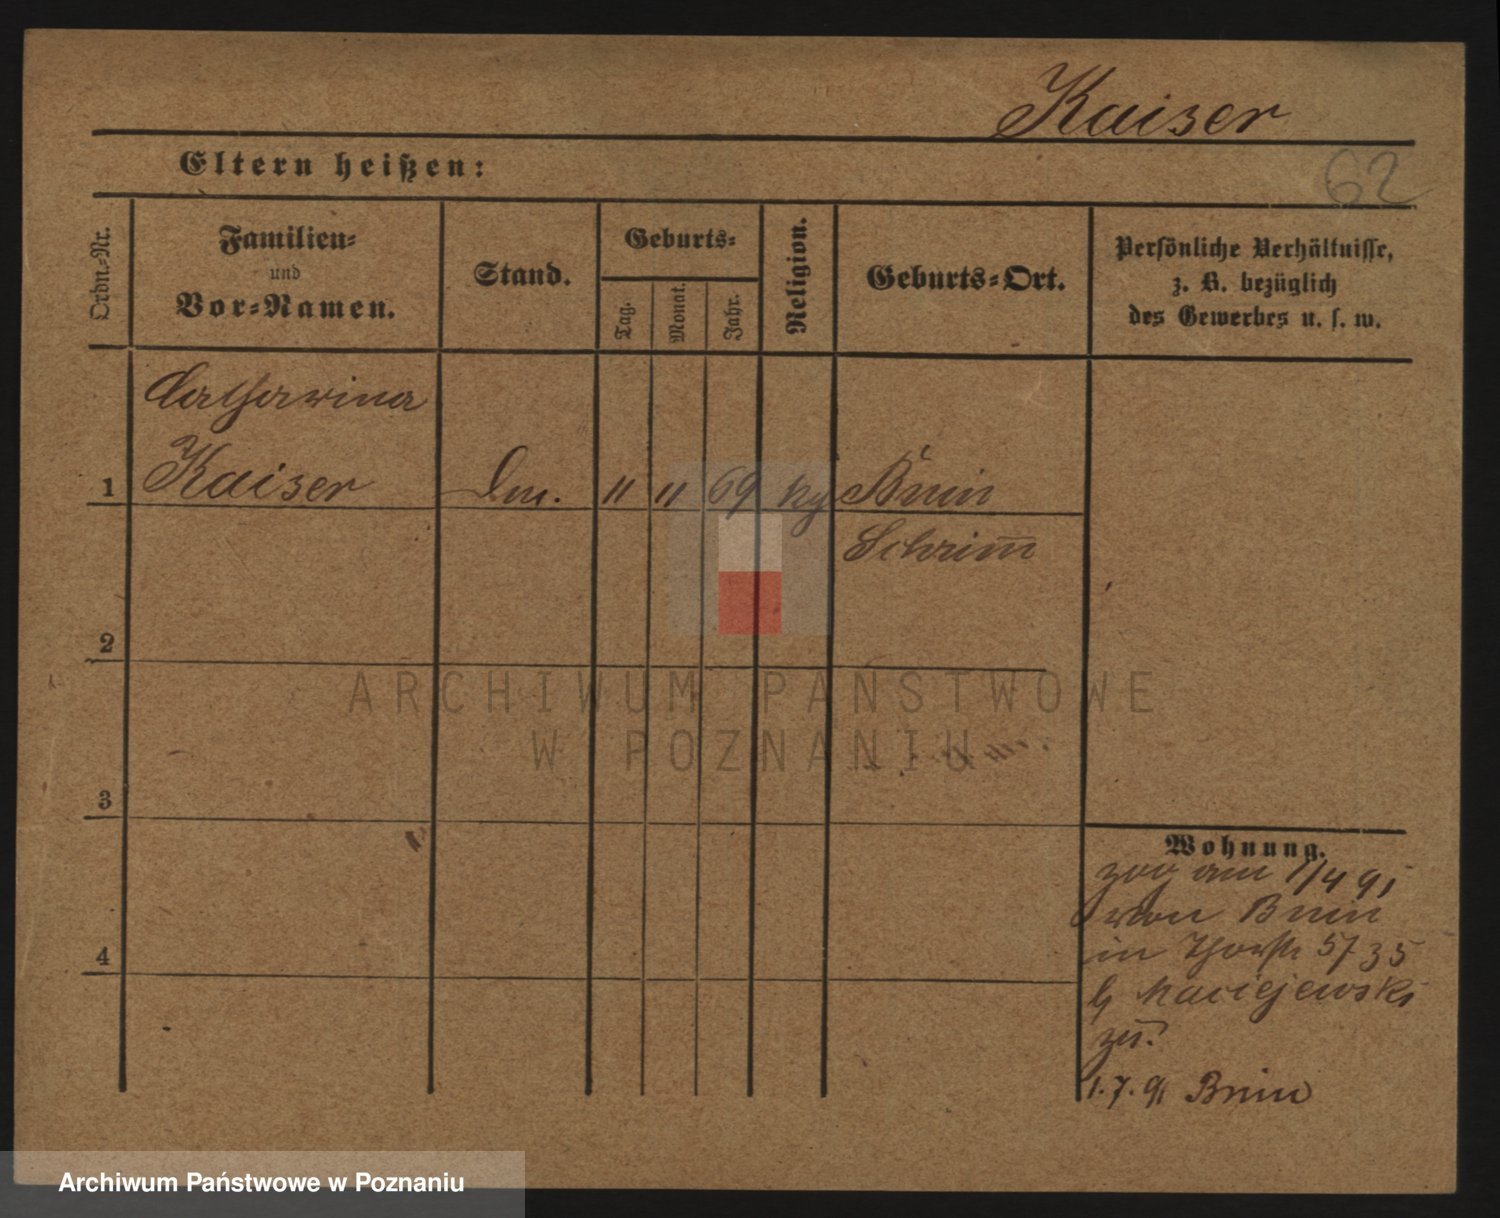 Kaiser
Eltern heißen:
62
Ordn.-Nr.
Familien-
und
Vor-Namen.
Stand.
Geburts-
Tag.
Monat.
Jahr.
Religion.
Geburts-Ort.
Persönliche Verhältnisse,
z. B. bezüglich
des Gewerbes u. s. w.
Catharina
1 Kaiser " " 69 Bnin
Schrimm
2
3
4
Wohnung.
zog am 1/4 91
von Bnin
in 5/ 35
b Maciejewski
zu.
1.7.91 Bnin
ARCHIWUM PAŃSTWOWE
W POZNANIU
Archiwum Państwowe w Poznaniu